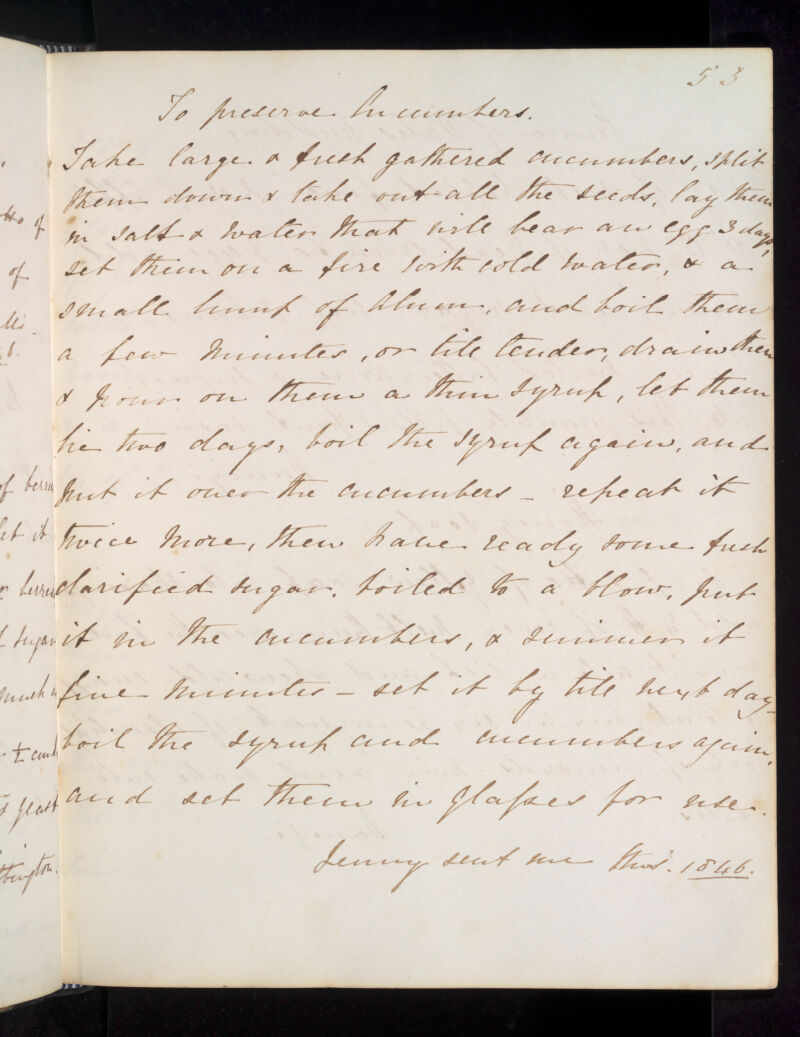 53
To preserve Cucumbers.
Take large & fresh gathered cucumbers, split
them down & take out all the seeds, lay them
in salt & water that will bear an egg 3 days,
set them on a fire with cold water, & a
small lump of Alum, and boil them
a few minutes, or till tender, drain them
& pour on them a thin syrup, let them
lie two days, boil the syrup again, and
put it over the cucumbers – repeat it
twice more, then have ready some fresh
clarified sugar, boiled to a blow, put
it in the cucumbers, & simmer it
five minutes – set it by till next day –
boil the syrup and cucumbers again,
and set them in glasses for use.
Jenny sent me this. 1846.
of
of
6.
of berries
let it
berries
sugar
much
½ and
yeast